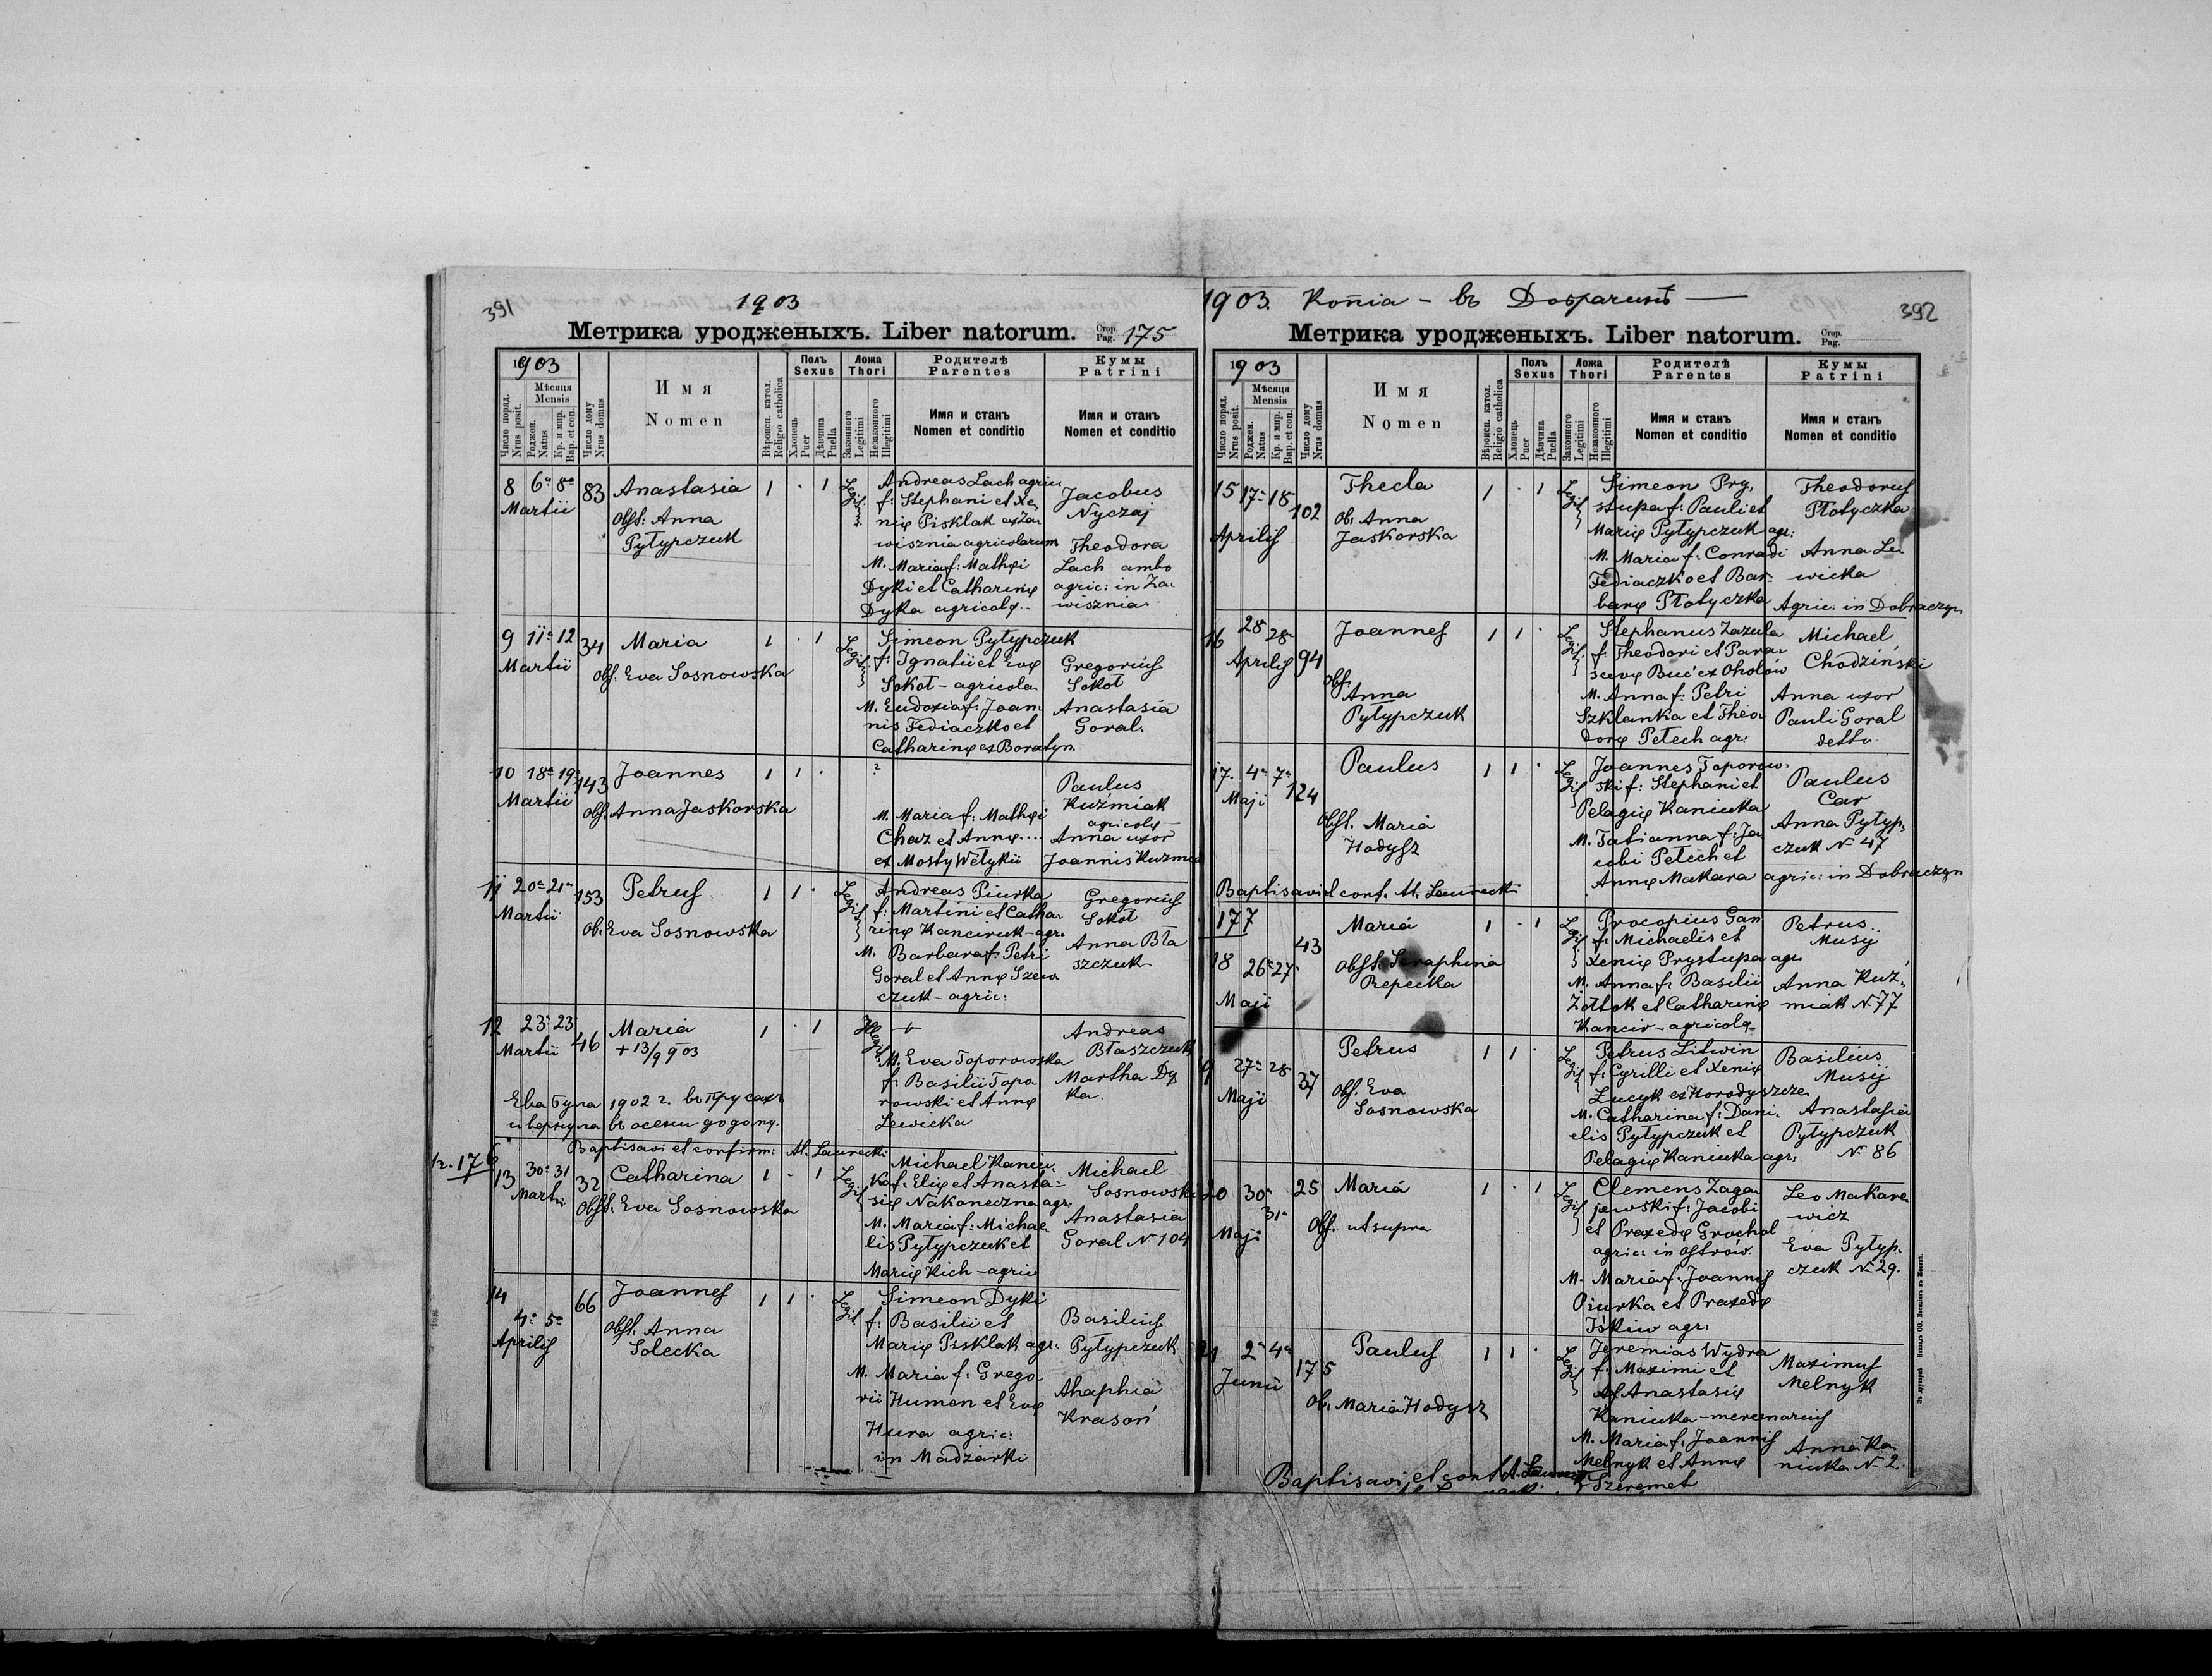 391
1903
Метрика уродженыхъ. Liber natorum. Стор. Pag. 175
1903
Число поряд. Nrus posit.
Мѣсяця Mensis
Роджен. Natus
Кр. и мир. Bap. et con.
Число дому Nrus domus
Имя
Nomen
Вѣроисп. катол. Religio catholica
Полъ Sexus
Хлопець Puer
Дѣвчина Puella
Ложа Thori
Законного Legitimi
Незаконного Illegitimi
Родителѣ
Parentes
Имя и станъ
Nomen et conditio
Кумы
Patrini
Имя и станъ
Nomen et conditio
8 6ª 8ª 83 Anastasia 1 · 1 Legit.
Martii
Obst: Anna
Pyłypczuk
Andreas Lach agric
f: Stephani et Xe
nię Pisklak ex Za
wisznia agricolarum
M. Maria f: Mathęi
Dyki et Catharinę
Dyka agricolę
Jacobus
Nyczaj
Theodora
Lach ambo
agric: in Za
wisznia
9 11ª 12 34 Maria 1 · 1 Legit.
Martii
Obst. Eva Sosnowska
Simeon Pyłypczuk
f: Ignatii et Evę
Sokoł - agricola
M. Eudoxia f: Joan
nis Fediaczko et
Catharinę ex Boratyn.
Gregorius
Sokoł
Anastasia
Goral.
10 18ª 19ª 143 Joannes 1 1 · ?
Martii
Obst. Anna Jaskorska
M. Maria f: Mathęi
Chaz et Annę....
ex Mosty Wełykii
Paulus
Kuźmiak
agricolę
Anna uxor
Joannis Kuzmia
11 20ª 21ª 153 Petrus 1 1 · Legit
Martii
Ob. Eva Sosnowska
Andreas Piurka
f: Martini et Catha
rinę Kanciruk - agr.
M. Barbara f: Petri
Goral et Annę Szew
czuk - agric:
Gregorius
Sokoł
Anna Bła
szczuk
12 23 23 46 Maria 1 · 1 Illegit
Martii
+ 13/9 903
M. Eva Toporowska
f: Basilii Topo
rowski et Annę
Lewicka
Andreas
Błaszczuk
Martha Dy
ka.
Ева була 1902 г. въ Прусахъ
и вернула въ осени додому.
Baptisavi et confirm: Al. Laurecki
n. 176
13 30ª 31 32 Catharina 1 - 1 Legit
Martii
Obst. Eva Sosnowska
Michael Kaniu
ka f: Elię et Anasta
się Nakoneczna agr.
M. Maria f: Michae
lis Pyłypczuk et
Marię Kich - agric
Michael
Sosnowski
Anastasia
Goral N 104
14 4ª 5ª 66 Joannes 1 1 · Legit
Aprilis
Obst. Anna
Solecka
Simeon Dyki
f: Basilii et
Marię Pisklak agr.
M. Maria f: Grego
rii Humen et Evę
Hura agric:
in Madziarki
Basilius
Pyłypczuk
Ahaphia
Krasoń
392
1903. Копіа - въ Добрачинѣ
Метрика уродженыхъ. Liber natorum. Стор. Pag.
1903
Число поряд. Nrus posit.
Мѣсяця Mensis
Роджен. Natus
Кр. и мир. Bap. et con.
Число дому Nrus domus
Имя
Nomen
Вѣроисп. катол. Religio catholica
Полъ Sexus
Хлопець Puer
Дѣвчина Puella
Ложа Thori
Законного Legitimi
Незаконного Illegitimi
Родителѣ
Parentes
Имя и станъ
Nomen et conditio
Кумы
Patrini
Имя и станъ
Nomen et conditio
15 17ª 18 102 Thecla 1 · 1 Legit
Aprilis
Ob. Anna
Jaskorska
Simeon Pry
stupa f: Pauli et
Marię Pyłypczuk agr:
M. Maria f: Conradi
Fediaczko et Bar
barę Płotyczka
Theodorus
Płotyczka
Anna Le
wicka
Agric: in Dobraczyn
16 28 28 94 Joannes 1 1 · Legit
Aprilis
Obst.
Anna
Pyłypczuk
Stephanus Zazula
f: Theodori et Para
scevę Buć ex Ohołów
M. Anna f: Petri
Szklanka et Theo
dorę Petech agr:
Michael
Chodziński
Anna uxor
Pauli Goral
detto
17. 4ª 7ª 124 Paulus 1 1 · Legit
Maji
Obst. Maria
Hadysz
Joannes Toporow
ski f: Stephani et
Pelagię Kaniuka
M. Tatianna f: Ja
cobi Petech et
Annę Makara
Paulus
Car
Anna Pyłyp
czuk N 47
agric: in Dobraczyn
Baptisavi et conf. Al. Laurecki
177
18 26ª 27ª 43 Maria 1 · 1 Legit
Maji
Obst. Seraphina
Repecka
Procopius Gan
f: Michaelis et
Xenię Prystupa agr.
M. Anna f: Basilii
Żołtok et Catharinę
Kanciv - agricolę
Petrus
Musij
Anna Kuź
miak N. 77
19 27ª 28 37 Petrus 1 1 · Legit
Maji
Obst. Eva
Sosnowska
Petrus Litwin
f: Cyrilli et Xenię
Łucyk ex Horodyszcze
M. Catharina f: Dani
elis Pyłypczuk et
Pelagię Kaniuka agr.
Basilius
Musij
Anastasia
Pyłypczuk
N 86
20 30ª 31ª 25 Maria 1 · 1 Legit
Maji
Obst. ut supra
Clemens Zaga
jewski f: Jacobi
et Praxedę Grochol
agric: in Ostrów.
M. Maria f: Joannis
Piurka et Praxedę
Iśkiw agr.
Leo Makare
wicz
Eva Pyłyp
czuk N 29.
21 2ª 4ª 175 Paulus 1 1 · Legit
Junii
Ob. Maria Hadysz
Jeremias Wydra
f: Maximi et
Anastasię
Kaniuka - mercenarius
M. Maria f: Joannis
Melnyk et Annę
Szeremet
Maximus
Melnyk
Anna Ka
niuka N 2.
Baptisavi et conf. Al.